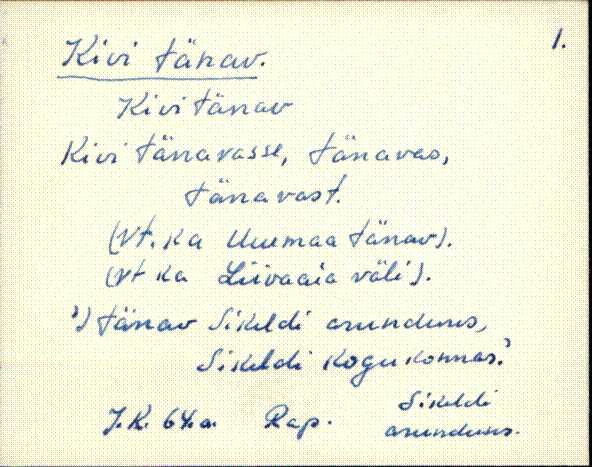 1.
Kivi tänav.
Kivi tänav
Kivi tänavasse, tänavas,
tänavast.
(Vt. ka Uuemaa tänav).
(Vt ka Liivaaia väli).
¹) tänav Sikeldi asunduses,
Sikeldi kogukonnas.
J.K. 64.a. Rap. Sikeldi
asundus.